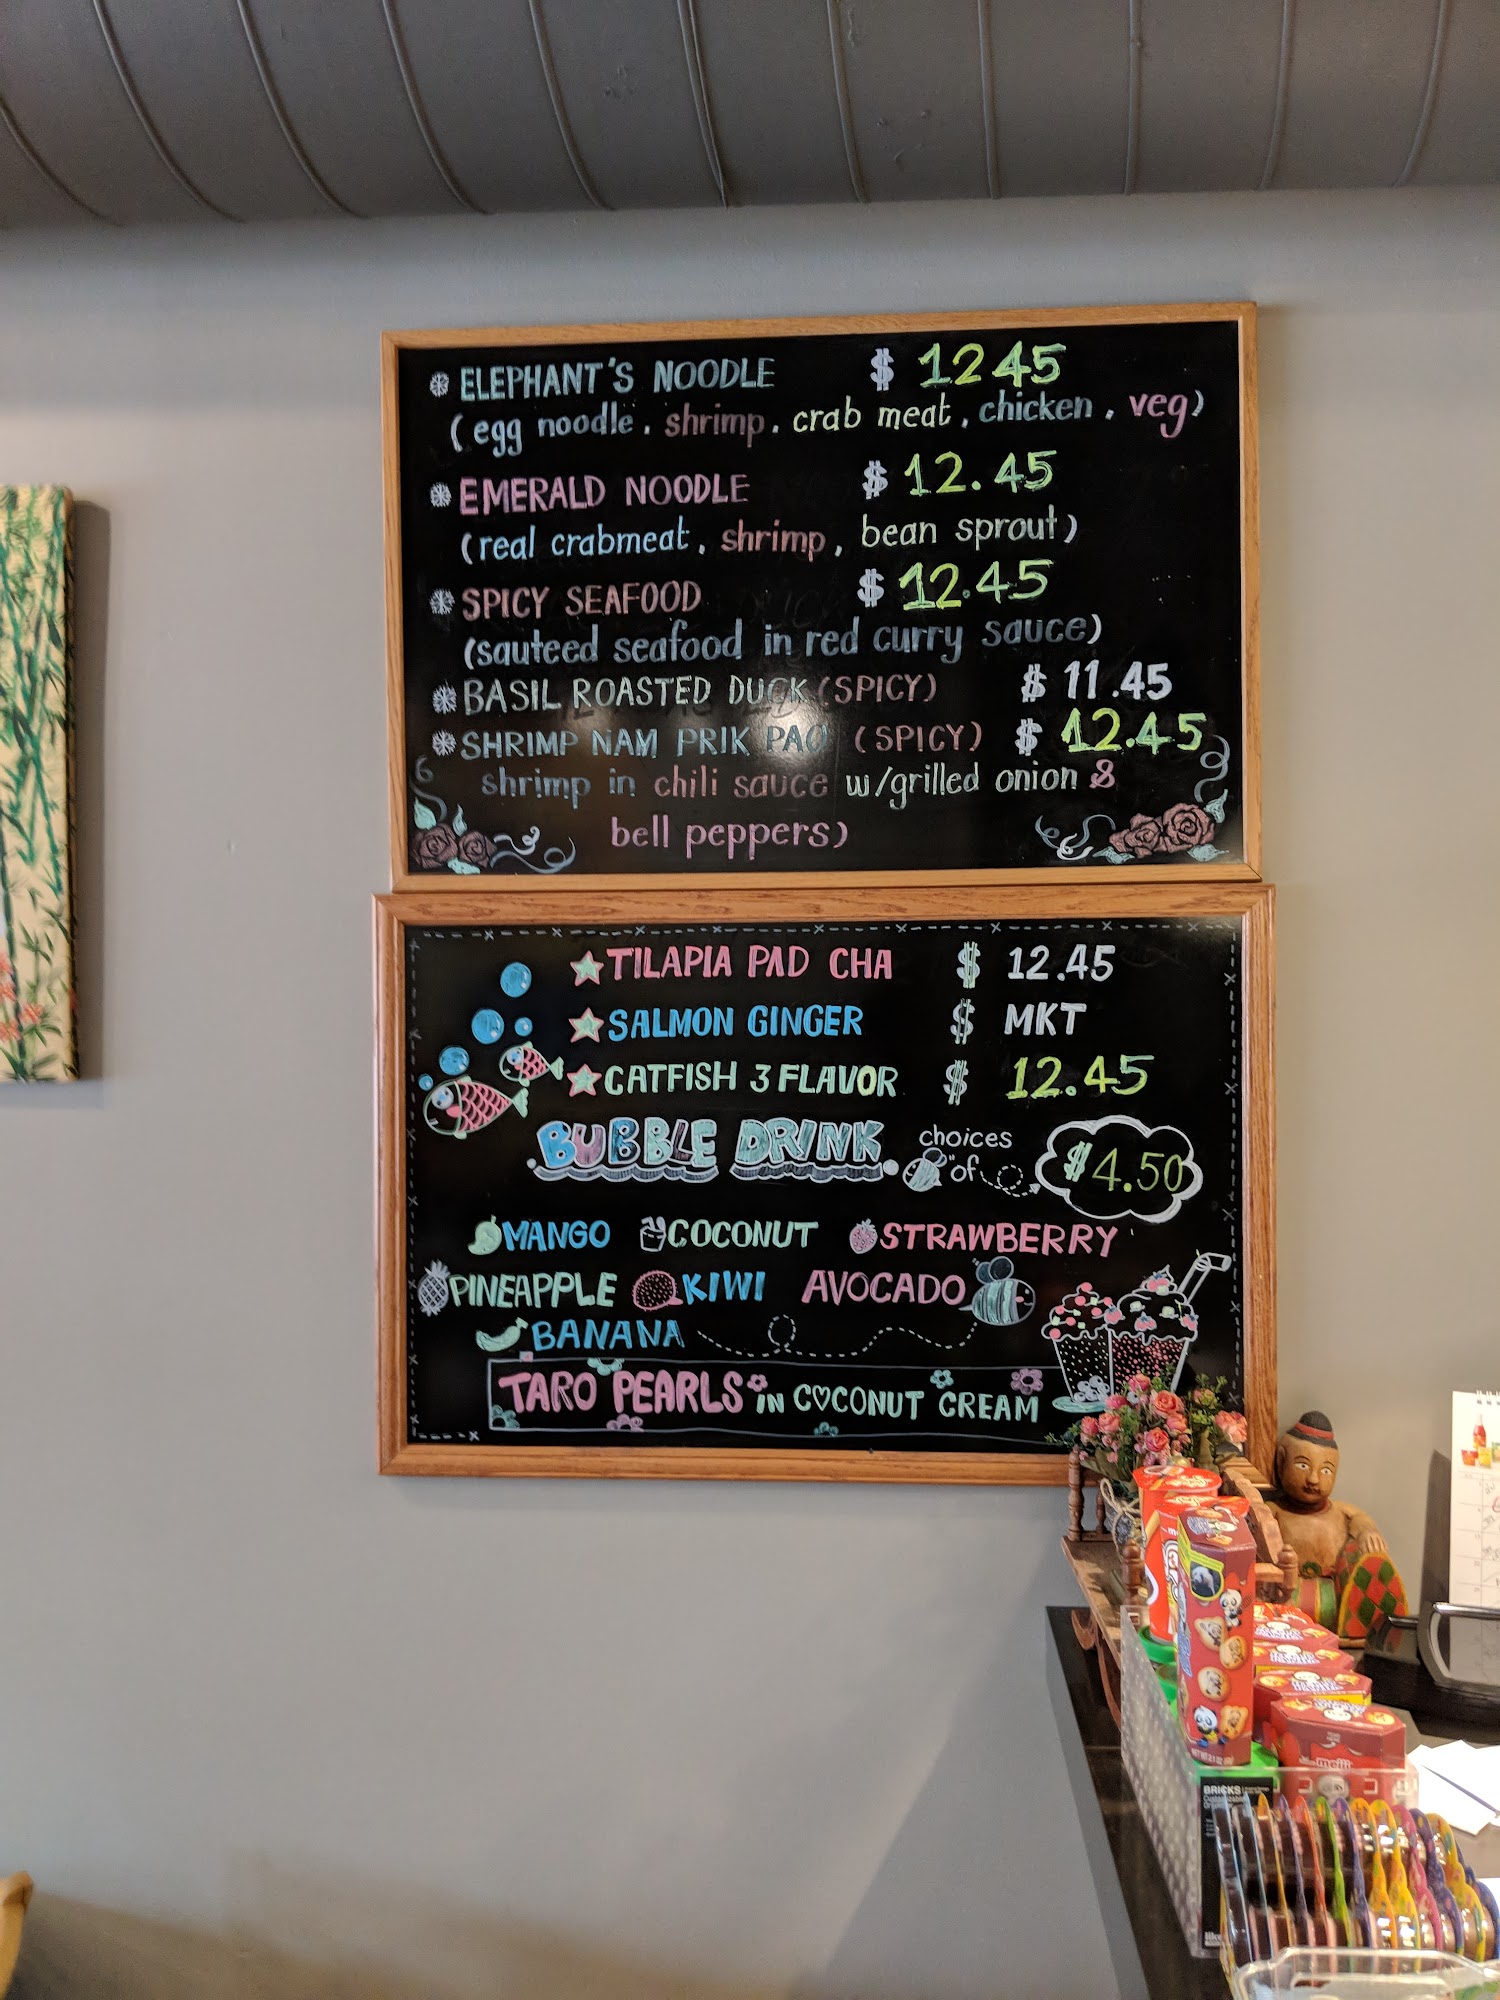 ELEPHANT'S NOODLE $ 12 45
(egg noodle. shrimp. crab meat, chicken. veg)
EMERALD NOODLE $ 12.45
(real crabmeat, shrimp, bean sprout)
SPICY SEAFOOD $ 12.45
(sauteed seafood in red curry sauce)
BASIL ROASTED DUCK (SPICY) $ 11.45
SHRIMP NAM PRIK PAO (SPICY) $ 12.45
shrimp in chili sauce w/grilled onion &
bell peppers)
TILAPIA PAD CHA $ 12.45
SALMON GINGER $ MKT
CATFISH 3 FLAVOR $ 12.45
BUBBLE DRINK choices of $4.50
MANGO COCONUT STRAWBERRY
PINEAPPLE KIWI AVOCADO
BANANA
TARO PEARLS IN COCONUT CREAM
meiji
BRICKS